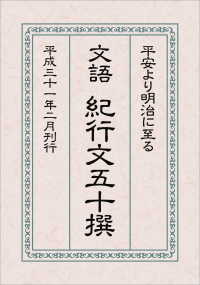 平安より明治に至る
文語 紀行文五十撰
平成三十一年二月刊行